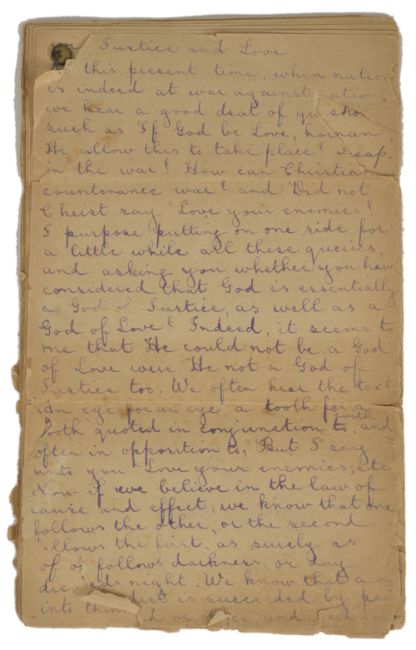 Justice and Love
this present time, when nation
is indeed at war against nation,
we hear a good deal of
such as 'If God be Love,
He allow this to take place?
in the war? How can Christian
countenance war? and 'Did not
Christ say 'Love your enemies?'
I purpose putting on one side for
a little while all these queries,
and asking you whether you have
considered that God is essentially
a God of Justice, as well as a
God of Love? Indeed, it seems to
me that He could not be a God
of Love were He not a God of
Justice too. We often hear the text
An eye for an eye, a tooth for a
tooth, quoted in conjunction with, and
often in opposition to, But I say
unto you Love your enemies, etc
Now if we believe in the law of
cause and effect, we know that one
follows the other, or the second
follows the first, as surely as
follows darkness, or day
night. We know that
is succeeded by
into